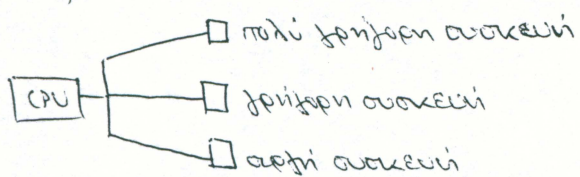 πολύ γρήγορη συσκευή
CPU
γρήγορη συσκευή
αργή συσκευή